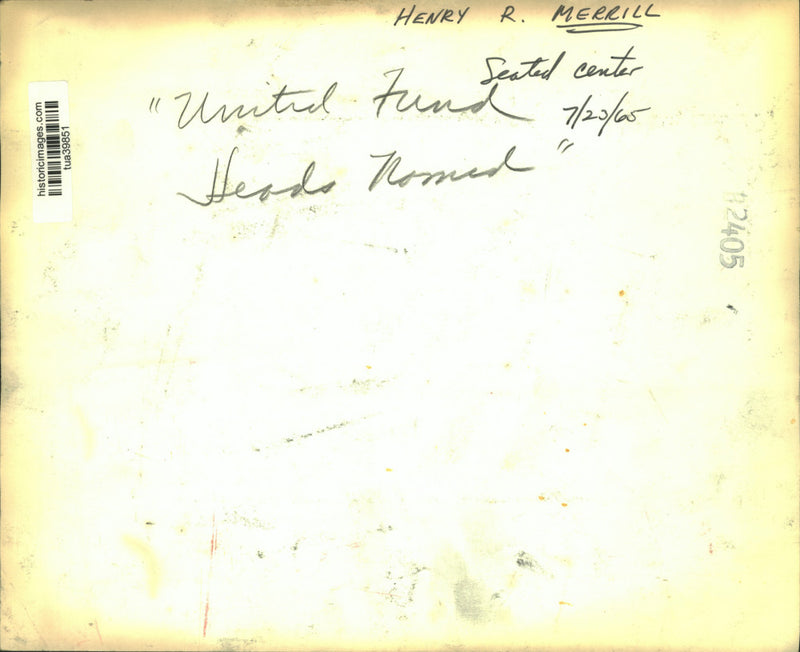 HENRY R. MERRILL
Seated center
"United Fund
7/23/65
Heads Named"
historicimages.com
tua39851
2405